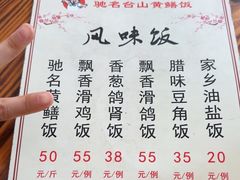 驰名台山黄鳝饭
风味饭
驰名黄鳝饭
50
元/斤
飘香滑鸡饭
55
元/例
香葱鸽肾饭
38
元/例
飘香滑鸽饭
55
元/例
腊味豆角饭
35
元/例
家乡油盐饭
20
元/例